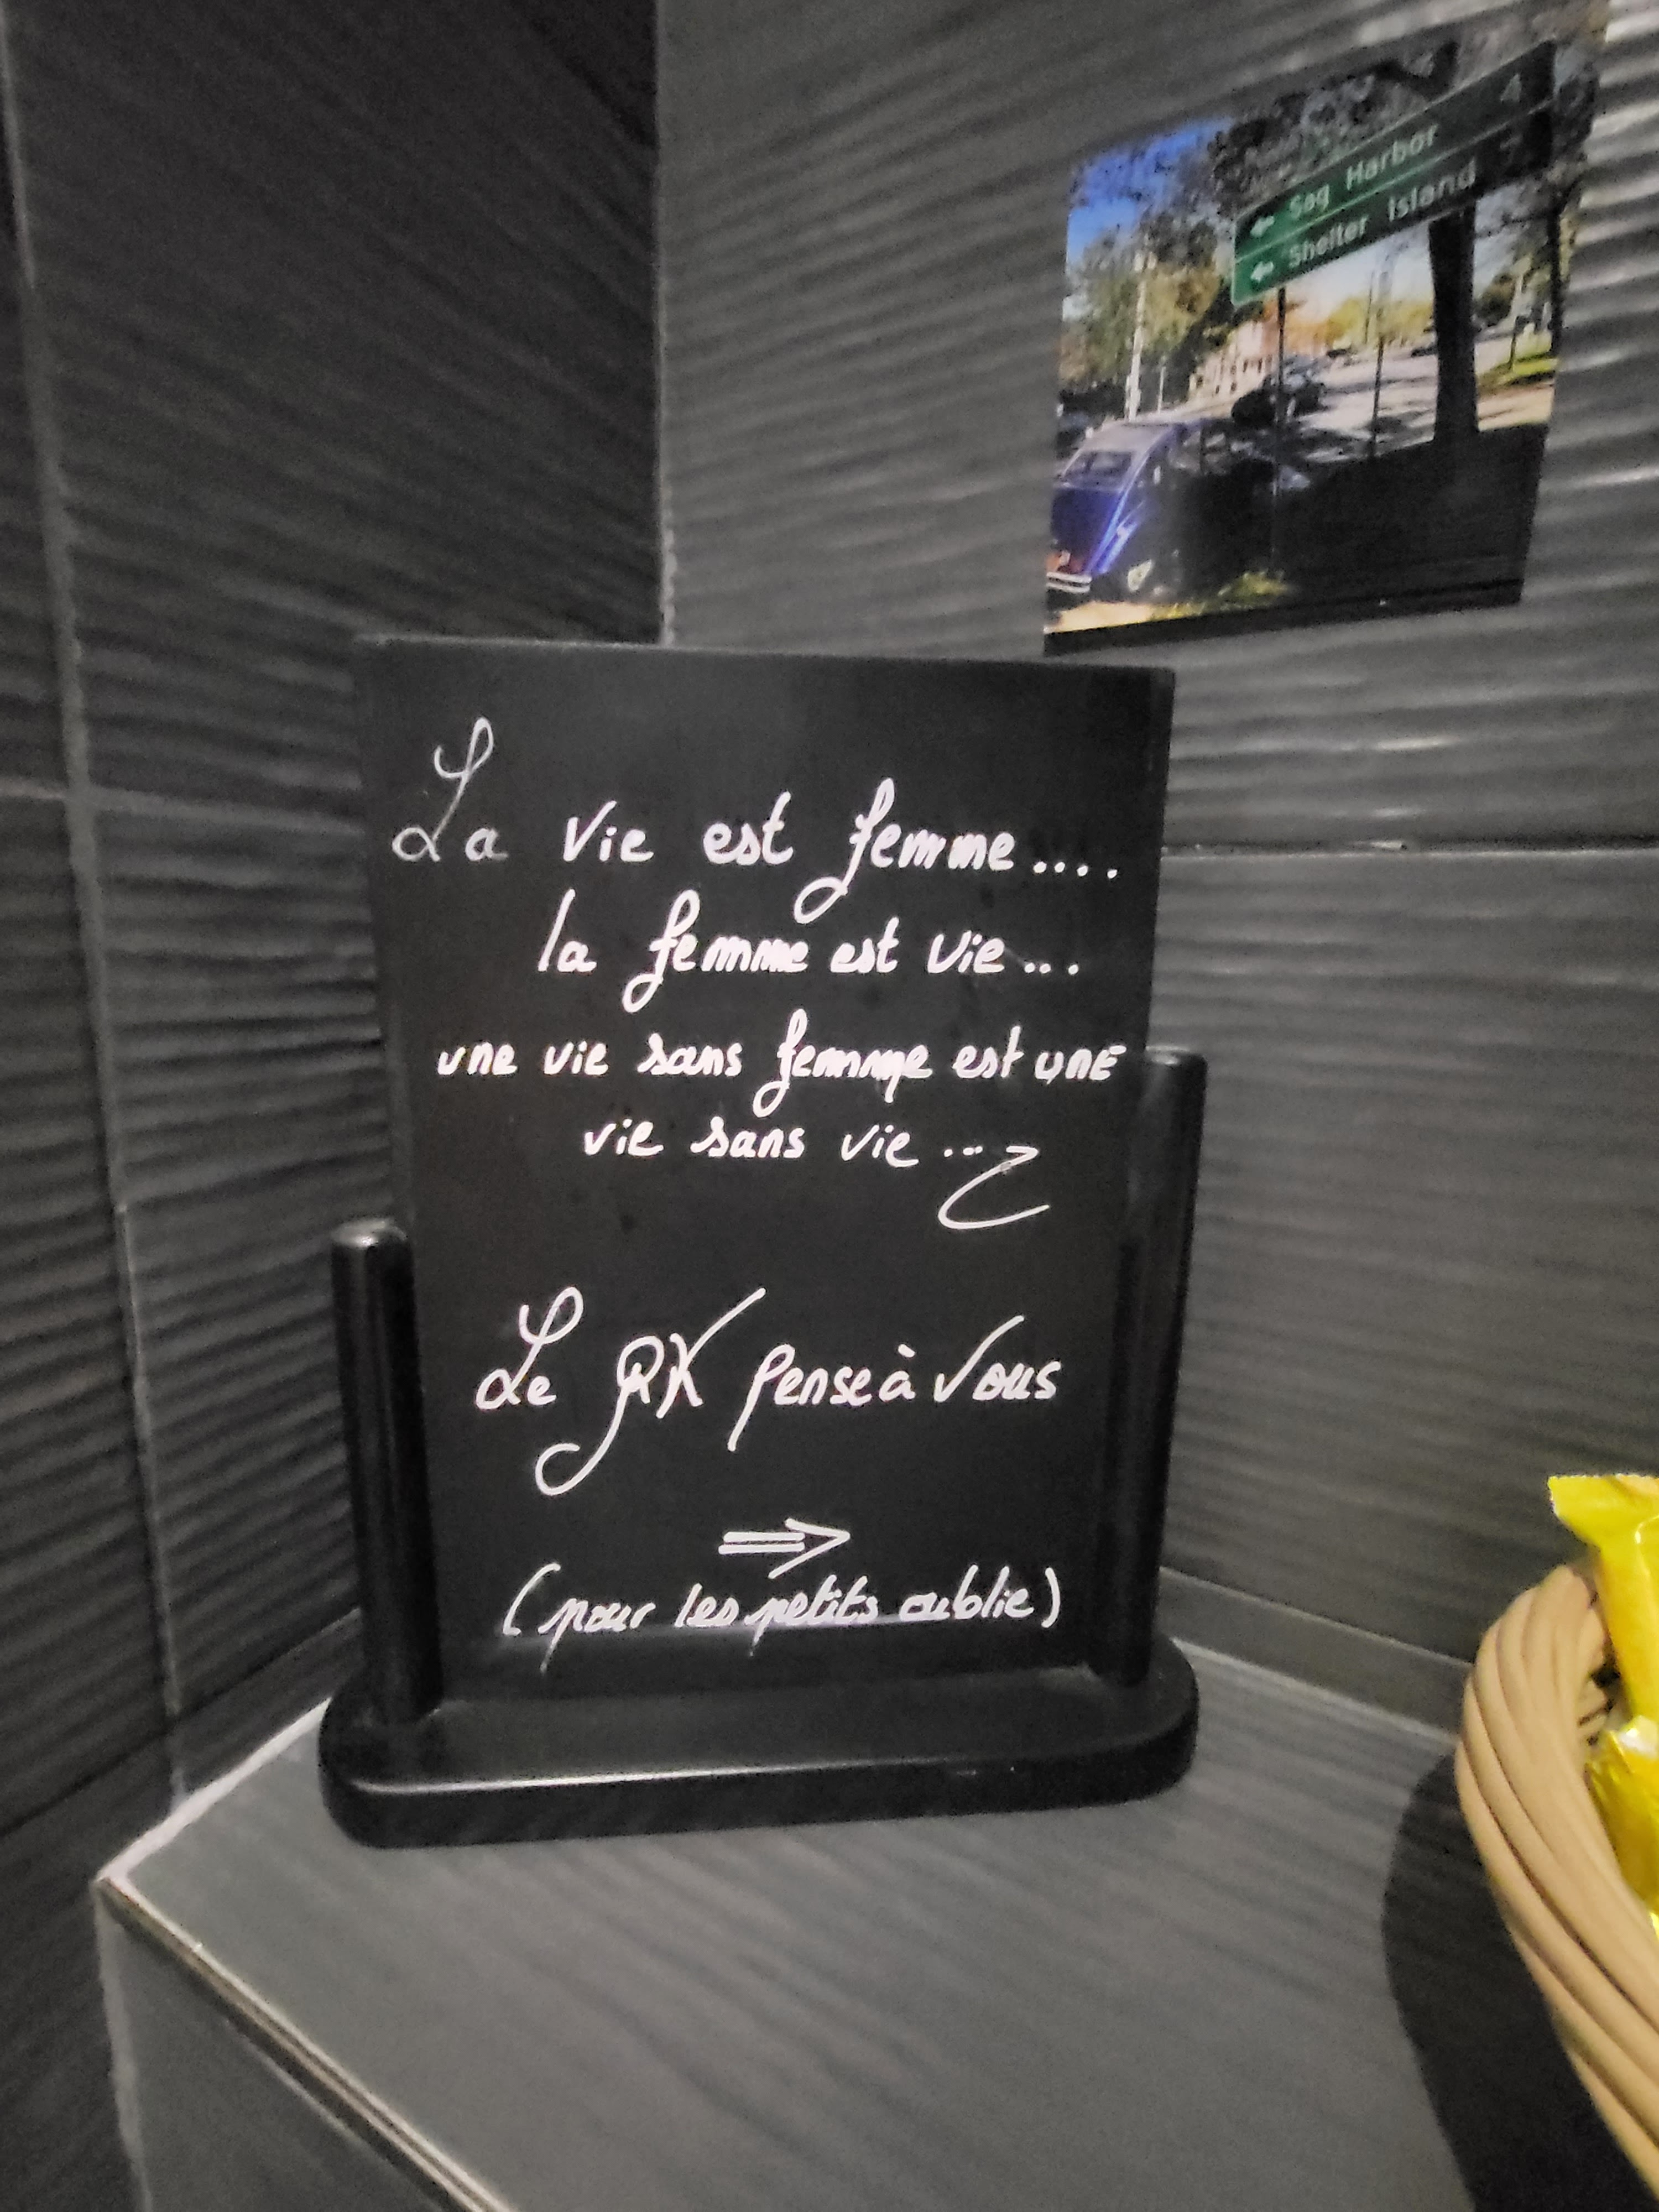 ← Sag Harbor 4
← Shelter Island 7
La vie est femme....
la femme est vie...
une vie sans femme est une
vie sans vie...
Le RK pense à vous
⇒
(pour les petits oublie)